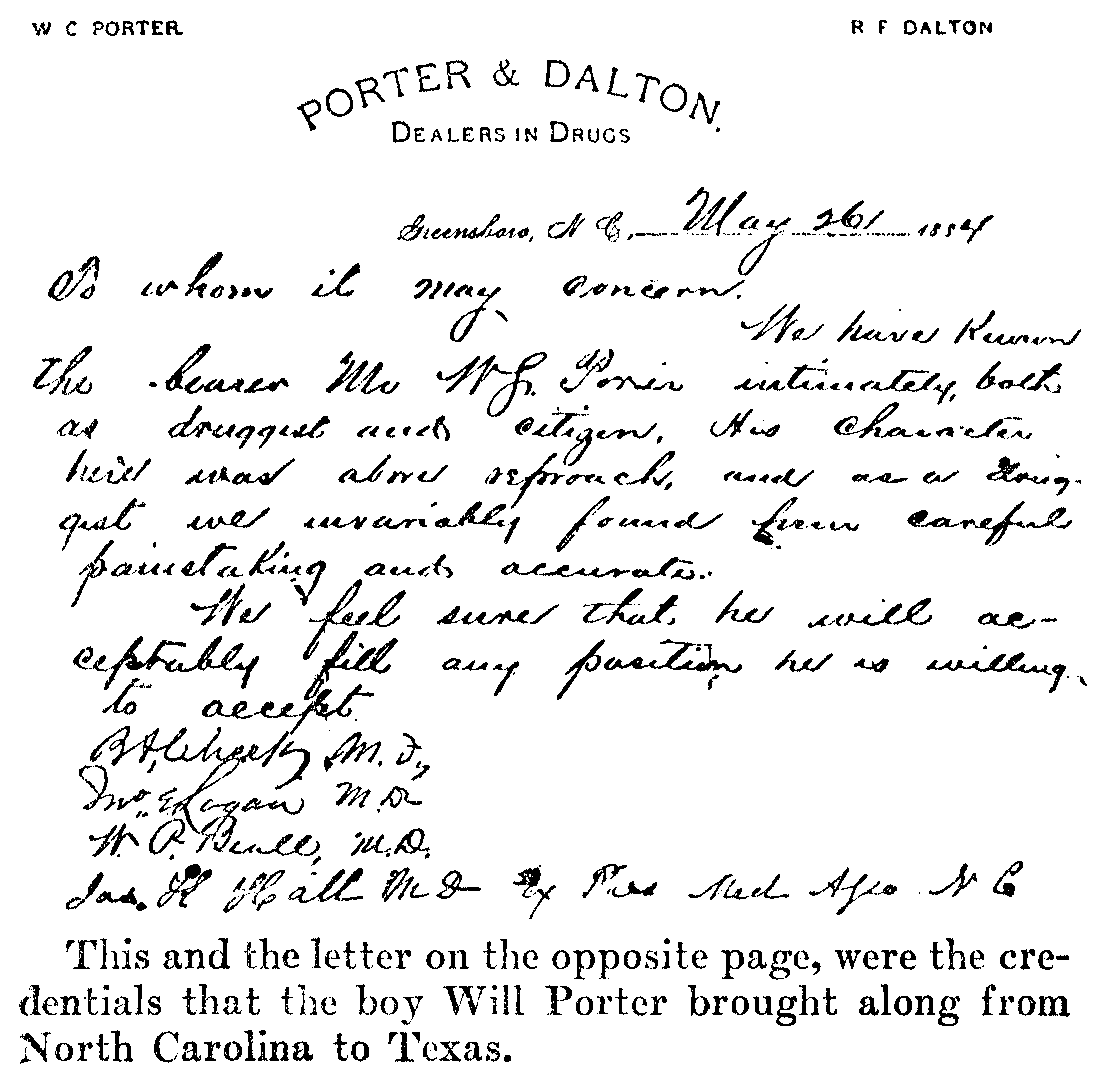 W C PORTER R F DALTON
PORTER & DALTON.
DEALERS IN DRUGS
Greensboro, N C. May 26 1884
To whom it may concern.
We have known
the bearer Mr W. S. Porter intimately, both
as druggist and citizen. His character
here was above reproach, and as a drug-
gist we invariably found him careful
painstaking and accurate.
We feel sure that he will ac-
ceptably fill any position he is willing
to accept
M. D,
Jno. E Logan M. D
W. P. Beall, M. D.
Jas. K Hall M D Ex Pres Med Asso N C
This and the letter on the opposite page, were the cre-
dentials that the boy Will Porter brought along from
North Carolina to Texas.